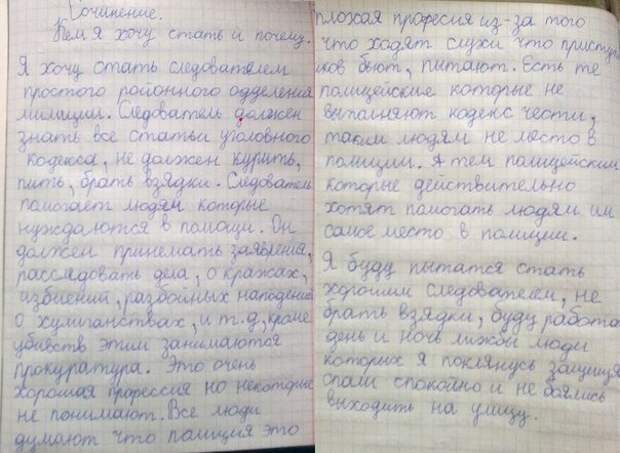 Сочинение.
Кем я хочу стать и почему.
Я хочу стать следователем
простого районного одделения
милиции. Следователь должен
знать все статьи уголовного
кодекса, не должен курить,
пить, брать взядки. Следователь
помогает людям которые
нуждаются в помощи. Он
должен принемать заявления,
расследовать дела, о кражах,
избиений, разбойных нападений
о хулиганствах, и т.д, кроме
убивств этим занимаются
прокуратура. Это очень
хорошая профессия но некоторые
не понимают. Все люди
думают что полиция это
плохая професия из-за того
что ходят слухи что приступ
ков бьют, питают. Есть те
полицейские которые не
выполняют кодекс чести,
таким людям не место в
полиции. А тем полицейским
которые действительно
хотят помогать людям им
самое место в полиции.
Я буду пытатся стать
хорошим следователем, не
брать взядки, буду работа
день и ночь лижбы люди
которых я поклянусь защищя
спали спокойно и не боялись
выходить на улицу.